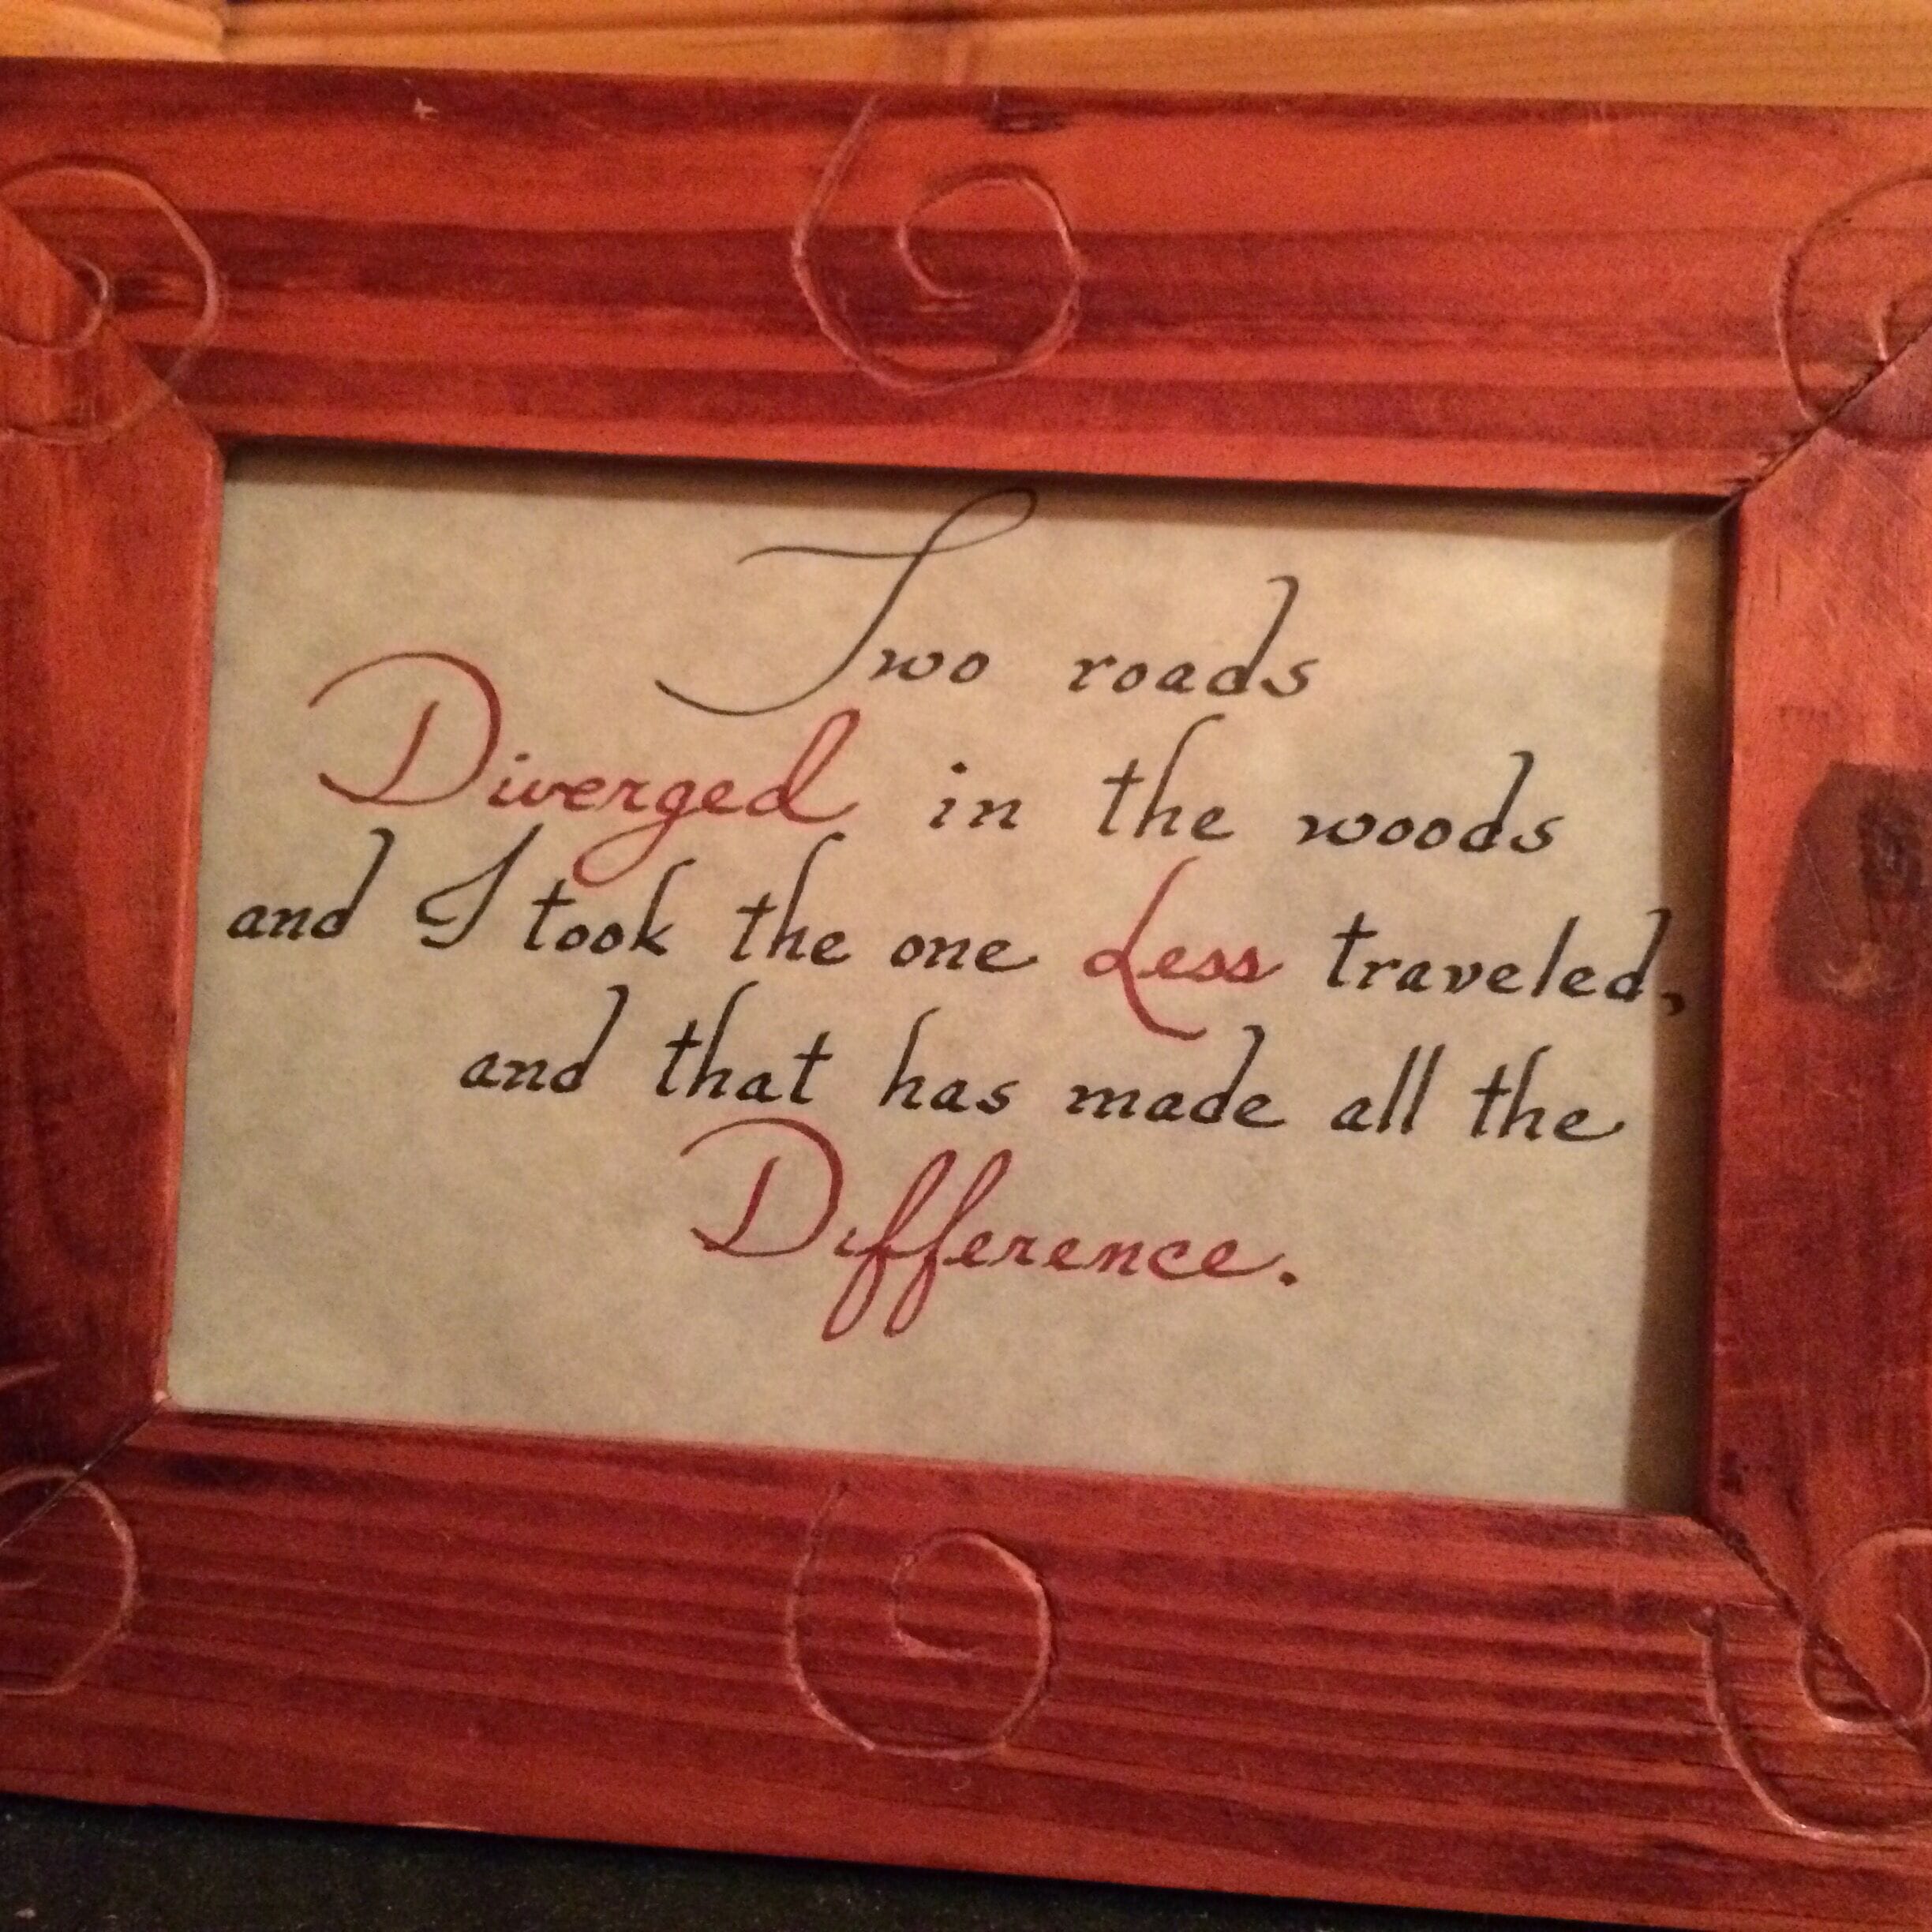 Two roads
Diverged in the woods
and I took the one Less traveled,
and that has made all the
Difference.